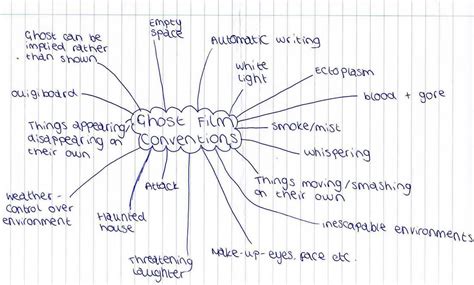 Ghost can be
implied rather
than shown.
Empty
space
Automatic writing
White
light
Ectoplasm
blood + gore
smoke/mist
whispering
Things moving/smashing
on their own
inescapable environments
Make-up-eyes, face etc.
Threatening
laughter
Attack
Haunted
house
weather -
control over
environment
Things appearing/
disappearing on
their own
ouigiboard
Ghost Film
Conventions